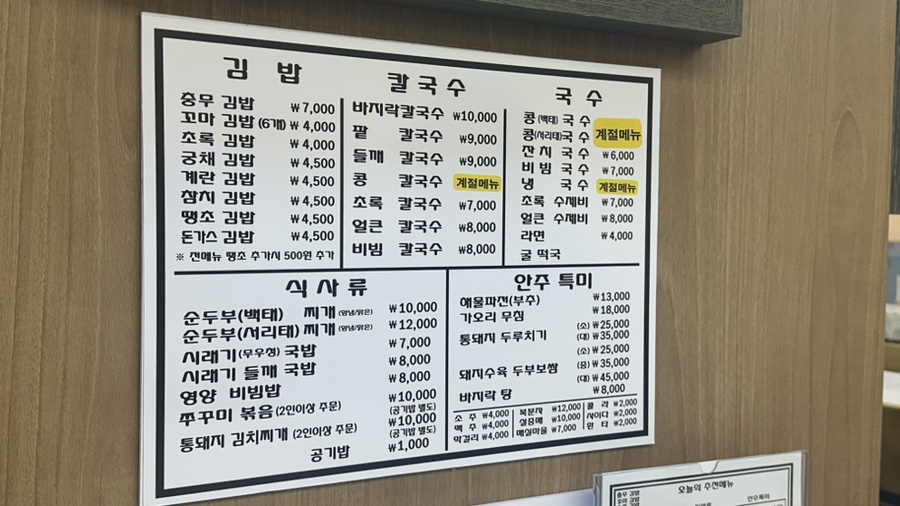 김 밥
충무 김밥 ₩7,000
꼬마 김밥 (6개) ₩4,000
초록 김밥 ₩4,000
궁채 김밥 ₩4,500
계란 김밥 ₩4,500
참치 김밥 ₩4,500
땡초 김밥 ₩4,500
돈가스 김밥 ₩4,500
※ 전메뉴 땡초 추가시 500원 추가
칼국수
바지락칼국수 ₩10,000
팥 칼국수 ₩9,000
들깨 칼국수 ₩9,000
콩 칼국수 계절메뉴
초록 칼국수 ₩7,000
얼큰 칼국수 ₩8,000
비빔 칼국수 ₩8,000
국 수
콩(백태)국 수
콩(서리태)국 수 계절메뉴
잔 치 국 수 ₩6,000
비 빔 국 수 ₩7,000
냉 국 수 계절메뉴
초록 수제비 ₩7,000
얼큰 수제비 ₩8,000
라면 ₩4,000
굴 떡국
식 사 류
순두부(백태) 찌개 (양념/맑은) ₩10,000
순두부(서리태) 찌개 (양념/맑은) ₩12,000
시래기(무우청) 국밥 ₩7,000
시래기 들깨 국밥 ₩8,000
영양 비빔밥 ₩8,000
쭈꾸미 볶음(2인이상 주문) ₩10,000
(공기밥 별도)
통돼지 김치찌개 (2인이상 주문) ₩10,000
(공기밥 별도)
공기밥 ₩1,000
안주 특미
해물파전(부추) ₩13,000
가오리 무침 ₩18,000
통돼지 두루치기 (소) ₩25,000
(대) ₩35,000
돼지수육 두부보쌈 (소) ₩25,000
(중) ₩35,000
(대) ₩45,000
바지락 탕 ₩8,000
소 주 ₩4,000
맥 주 ₩4,000
막걸리 ₩4,000
복분자 ₩12,000
설중매 ₩10,000
매실마을 ₩7,000
콜 라 ₩2,000
사이다 ₩2,000
환 타 ₩2,000
오늘의 추천메뉴
충무 김밥
꼬마 김밥
초록 김밥
안주특미